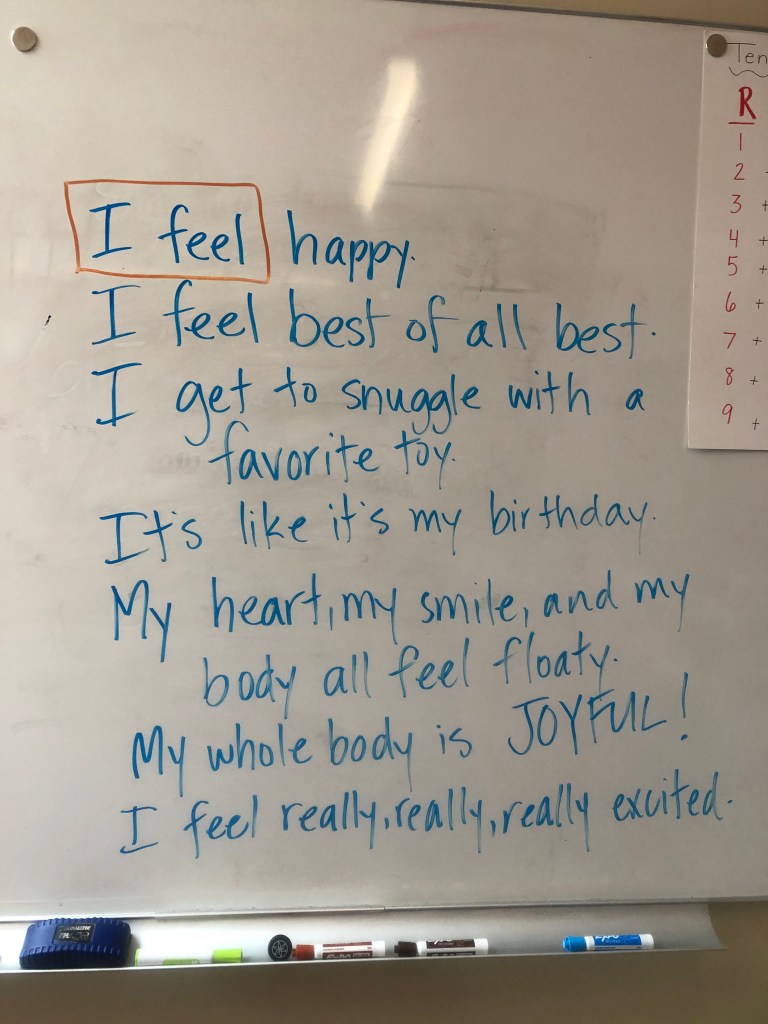 I feel happy.
I feel best of all best.
I get to snuggle with a
favorite toy.
It's like it's my birthday.
My heart, my smile, and my
body all feel floaty.
My whole body is JOYFUL!
I feel really, really, really excited.
Ten
R
1
2
3 +
4 +
5 +
6 +
7 +
8 +
9 +
expo